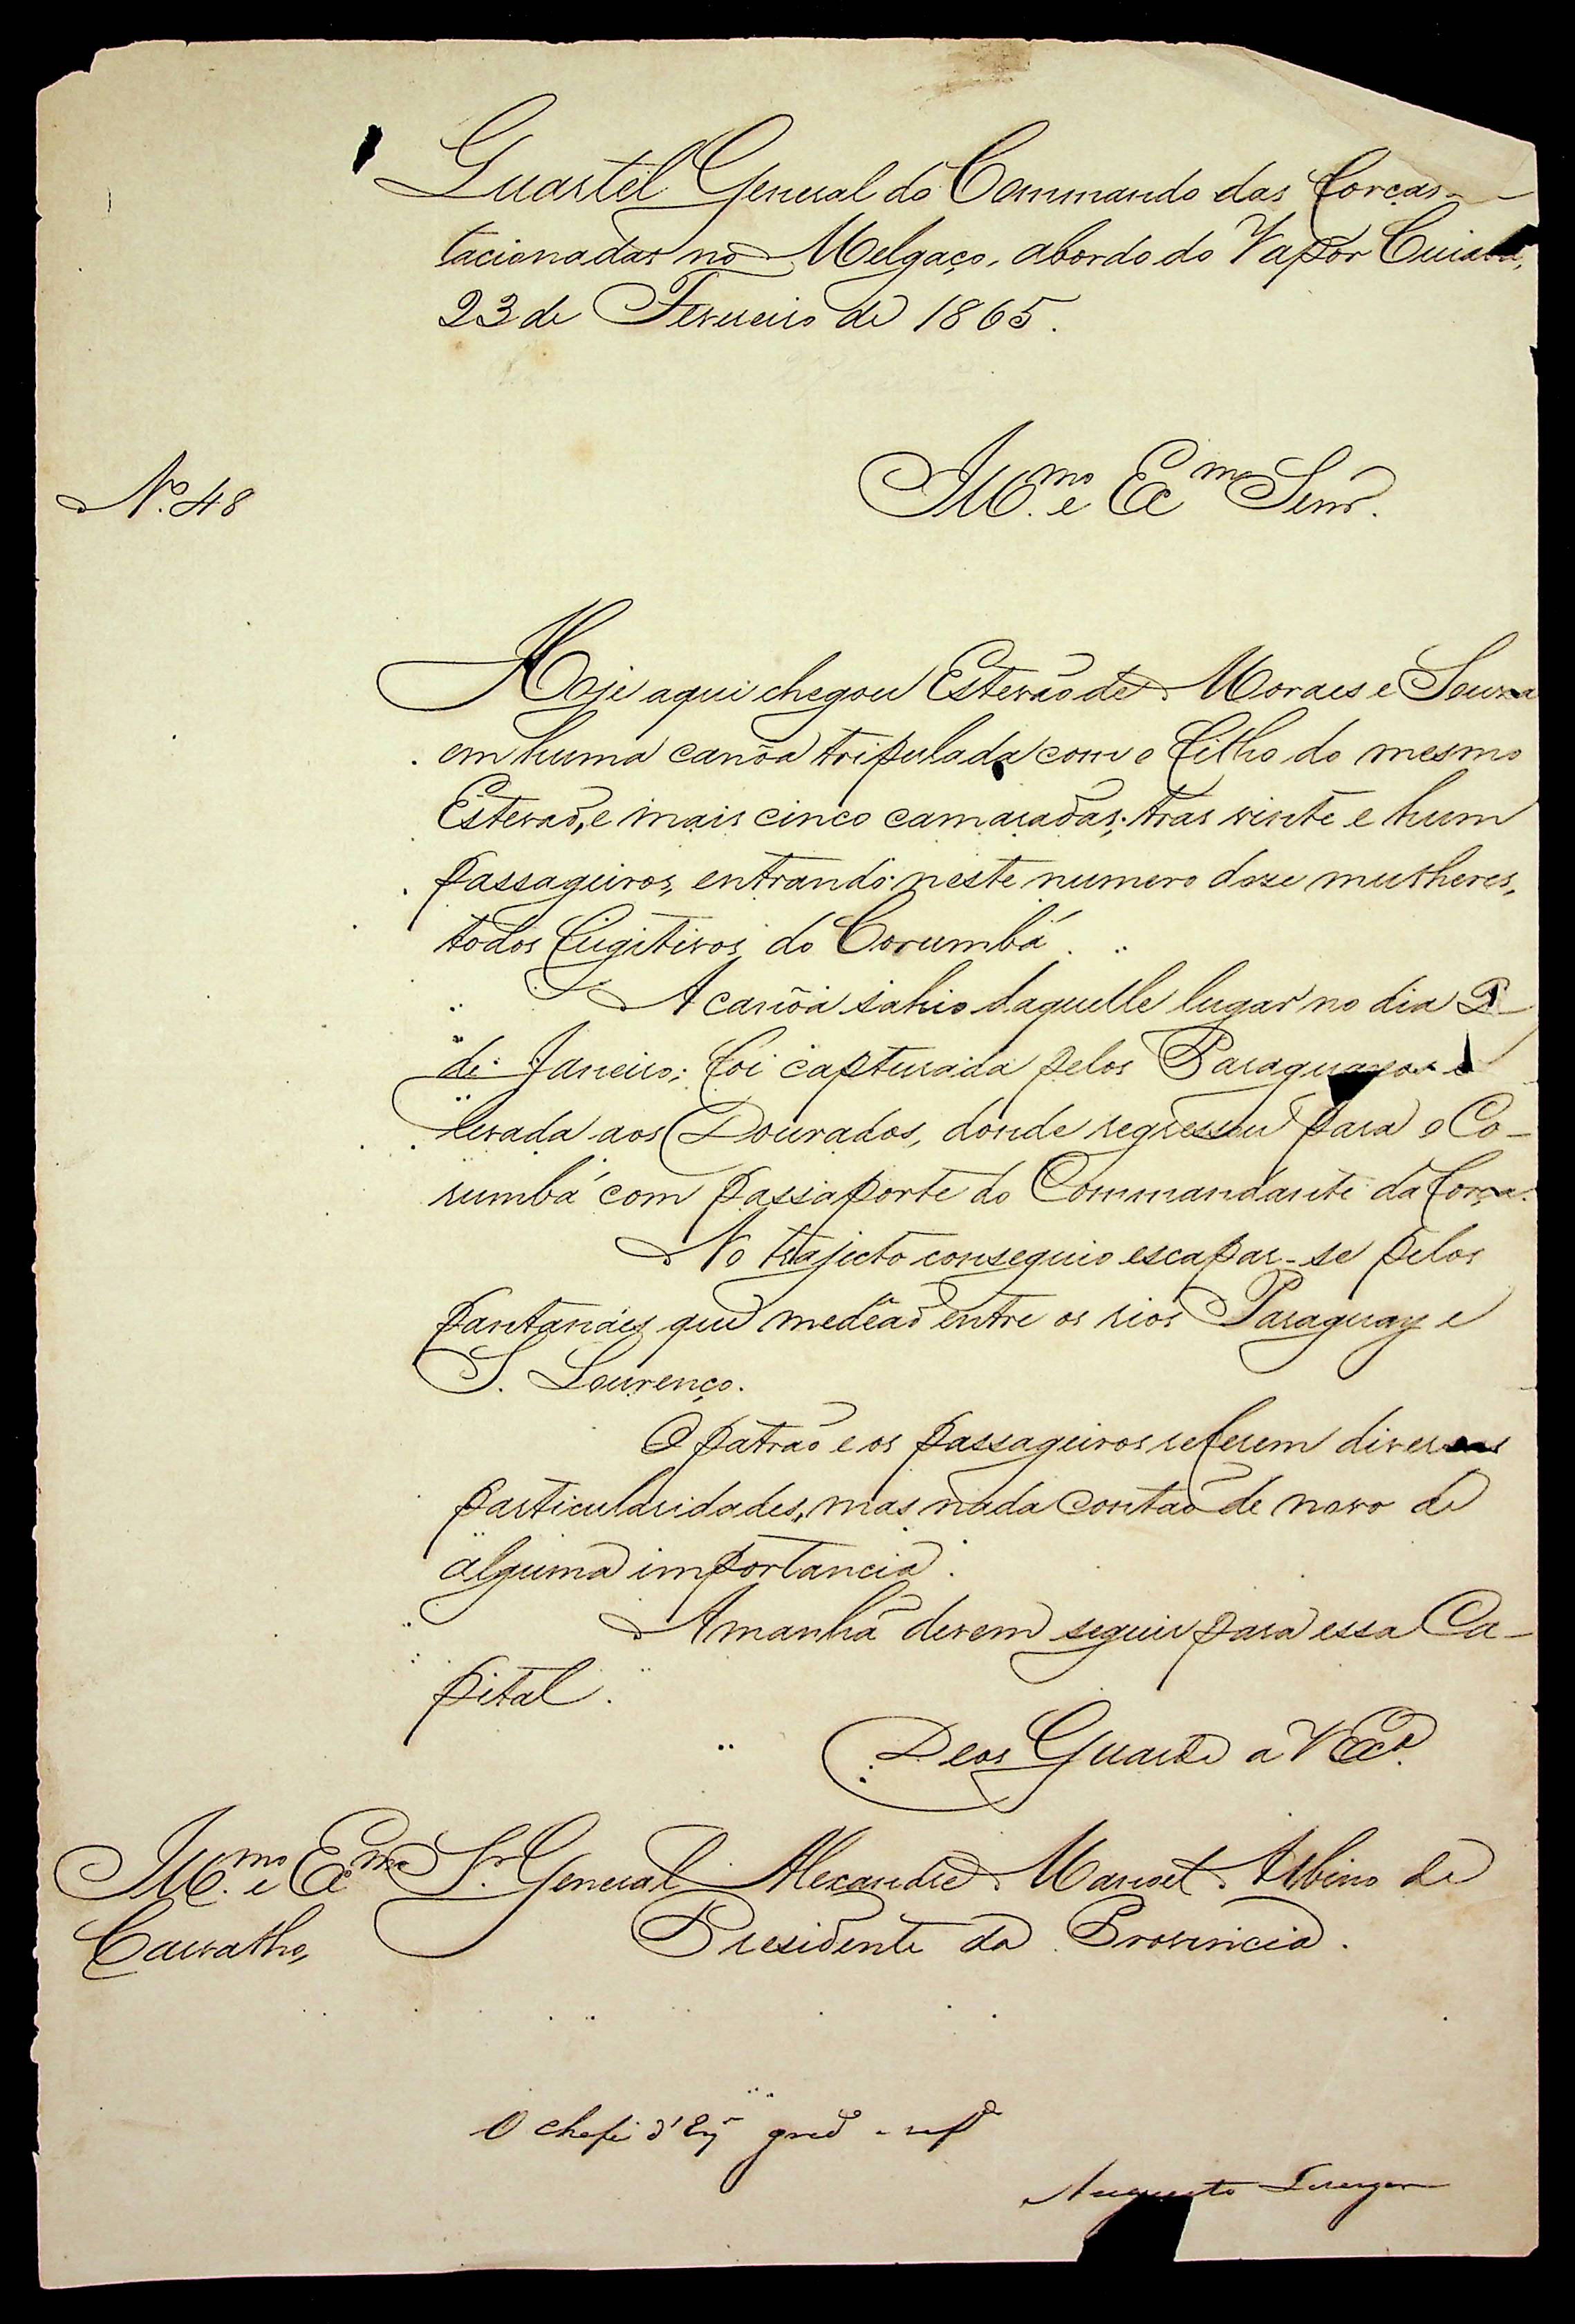 Quartel General do Commando das Forças
tacionadas no Melgaço, abordo do Vapor Cuiabá,
23 de Fevereiro de 1865.
N.º 48
Ill.mo e Ex.mo Senr.
Hoje aqui chegou Estevão de Moraes e Souza
em huma canôa tripulada com o filho do mesmo
Estevaõ, e mais cinco camaradas; tras vinte e hum
passageiros, entrando neste numero doze mulheres,
todos fugitivos do Corumbá.
A canôa sahio daquelle lugar no dia
de Janeiro; foi capturada pelos Paraguayos e
levada aos Dourados, donde regressou para o Co-
rumbá com passaporte do Commandante da força.
No trajecto conseguio escapar-se pelos
pantanáes que medêaõ entre os rios Paraguay e
S. Lourenço.
O patraõ e os passageiros referem diversas
particularidades, mas nada contaõ de novo de
alguma importancia.
Amanhã devem seguir para essa Ca-
pital.
Deos Guarde a V Ex.ª
Ill.mo e Ex.mo Sr. General Alexandre Manoel Albino de
Carvalho, Presidente da Provincia.
O chefe d'Eq grad ref
Augusto Leverger